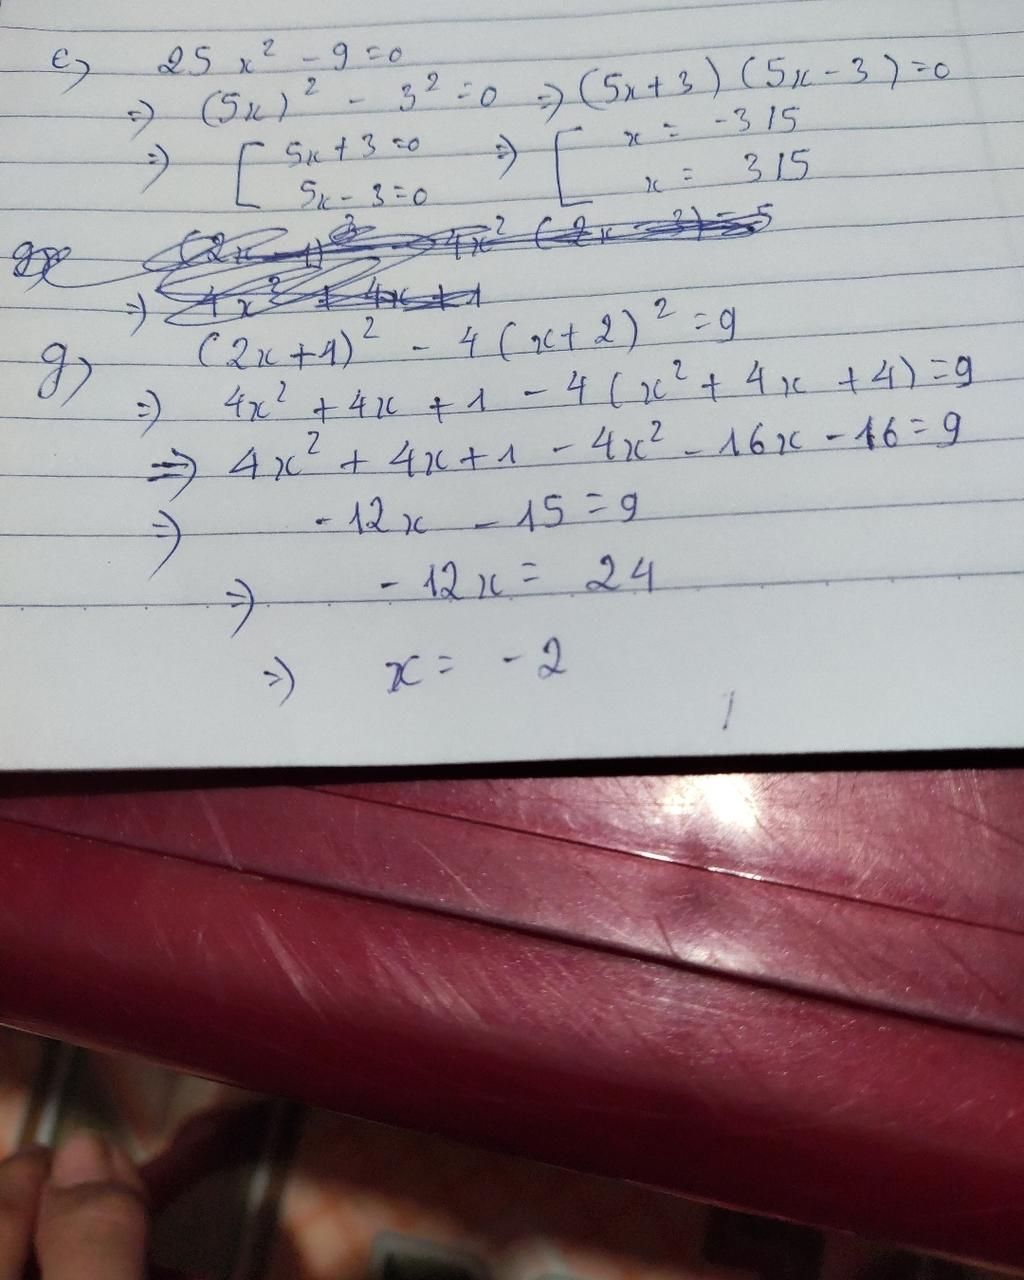 e) 25x² - 9 = 0
=> (5x)² - 3² = 0 => (5x+3) (5x-3) = 0
=> [ 5x + 3 = 0 => [ x = -3/5
5x - 3 = 0 x = 3/5
g) (2x+1)² - 4(x+2)² = 9
=> 4x² + 4x + 1 - 4(x² + 4x + 4) = 9
=> 4x² + 4x + 1 - 4x² - 16x - 16 = 9
=> -12x - 15 = 9
=> -12x = 24
=> x = -2